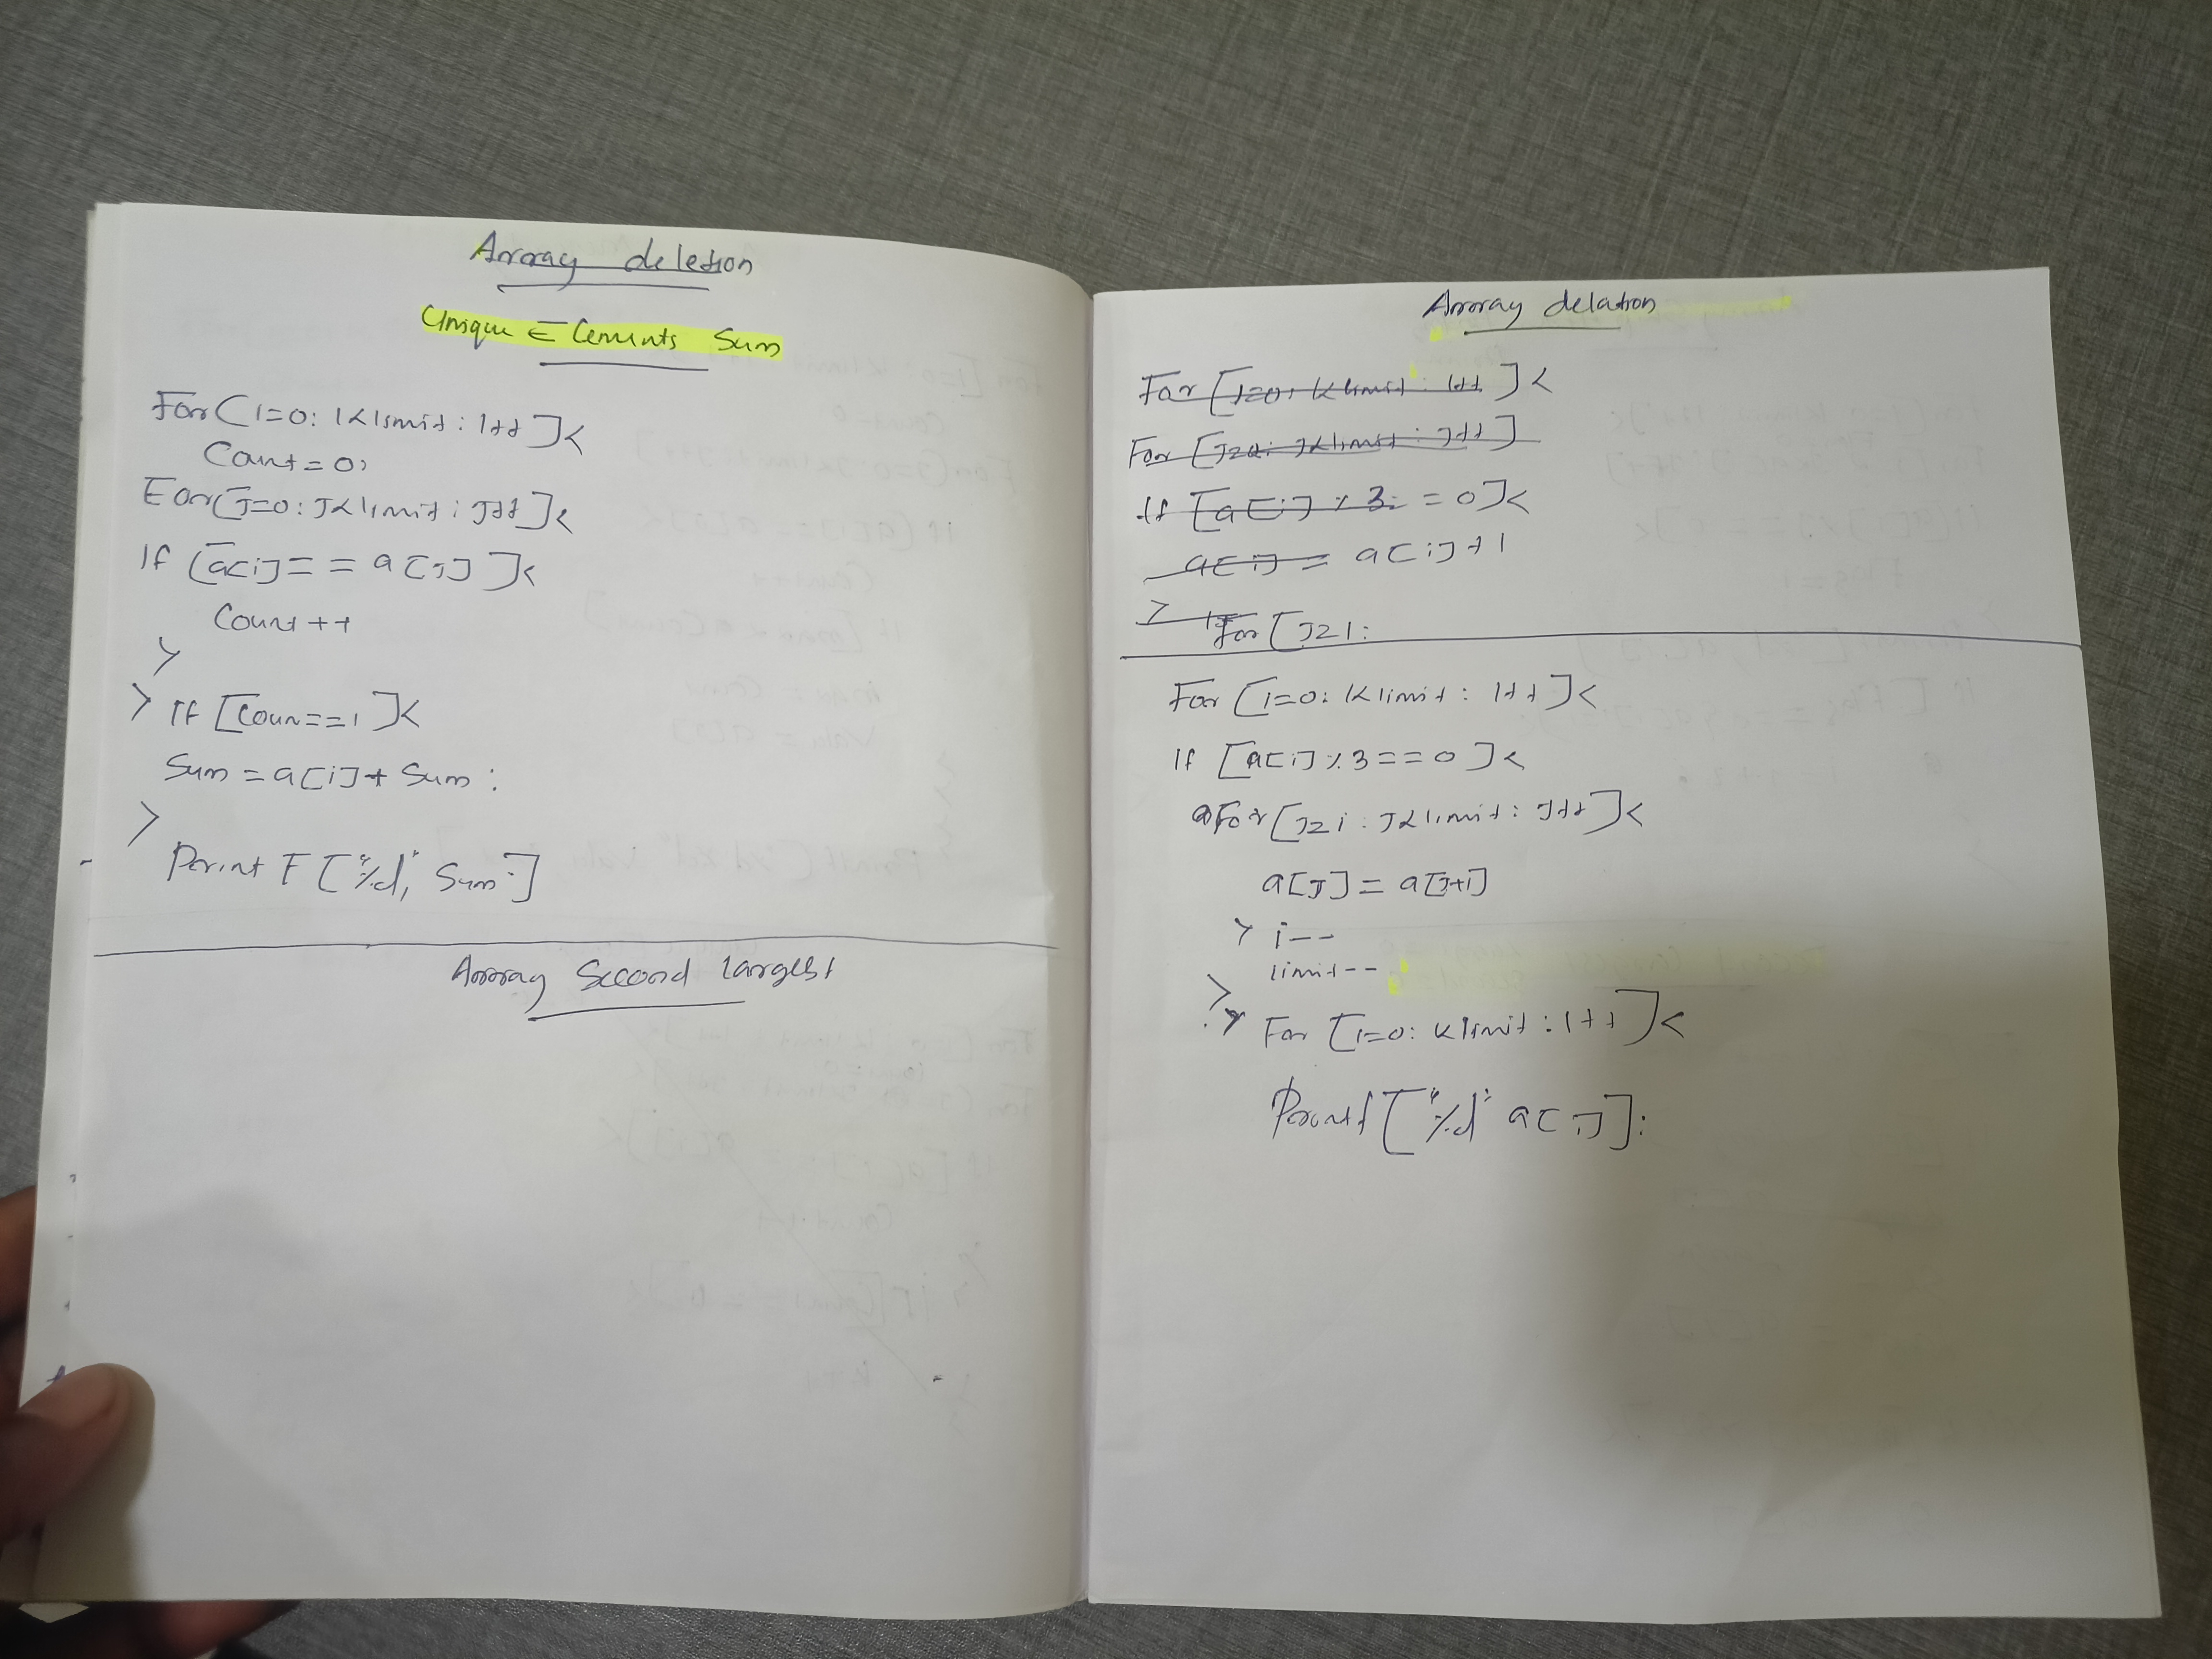 Array deletion
Unique Elements Sum
For(i=0: i<limit: i++]<
Count=0;
For[J=0: J<limit: J++]<
If [a[i]== a[j]]<
Count++
>
> If [Coun==1]<
Sum=a[i]+ Sum:
>
Print F["%d", Sum:]
Array Second largest
Array delation
For [i=0: i<limit: i++]<
For [J=a: J<limit: J++]
If [a[i] % 3: = 0]<
a[i] = a[i]+1
>
For [J=i:
For [i=0: i<limit: i++]<
If [a[i]%3==0]<
For[J=i: J<limit: J++]<
a[J]=a[J+1]
> i--
limit--
>
> For [i=0: i<limit: i++]<
Printf["%d" a[i]]: